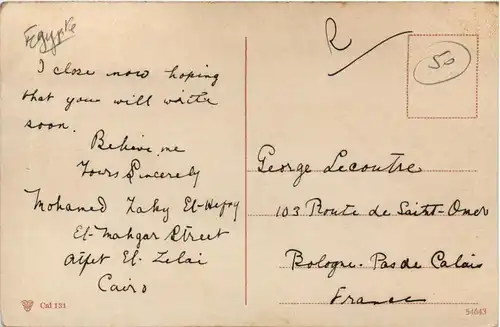 Egypte
I close now hoping
that you will write
soon.
Believe me
Yours Sincerely
Mohamed Zaky El-Hefny
El-Mahgar Street
Atfet El-Zelai
Cairo
Cal 131
R
50
George Lecoutre
103 Route de Saint-Omer
Bologne. Pas de Calais
France
54043